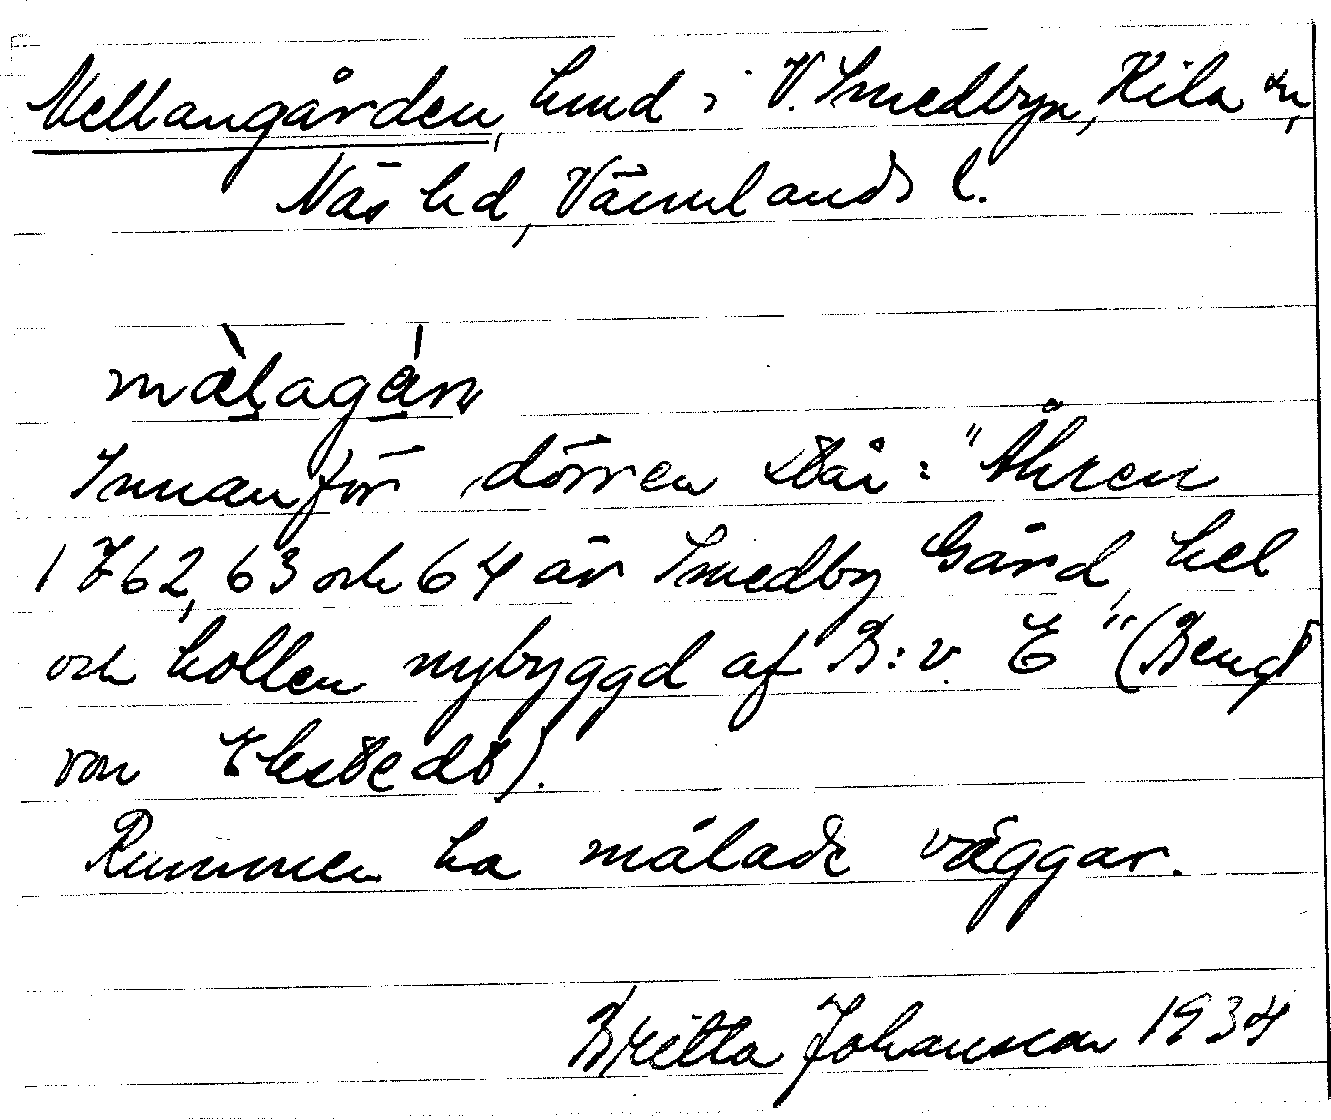 Mellangården, hmd i V. Smedbyn, Kila sn,
Näs hd, Värmlands l.
Innanför dörren står: "Åhren
1762, 63 och 64 är Smedby Gård, hel
och hollen nybyggd af B: v. E" (Bengt
von Ekstedt).
Rummen ha målade väggar.
Britta Johansson 1934